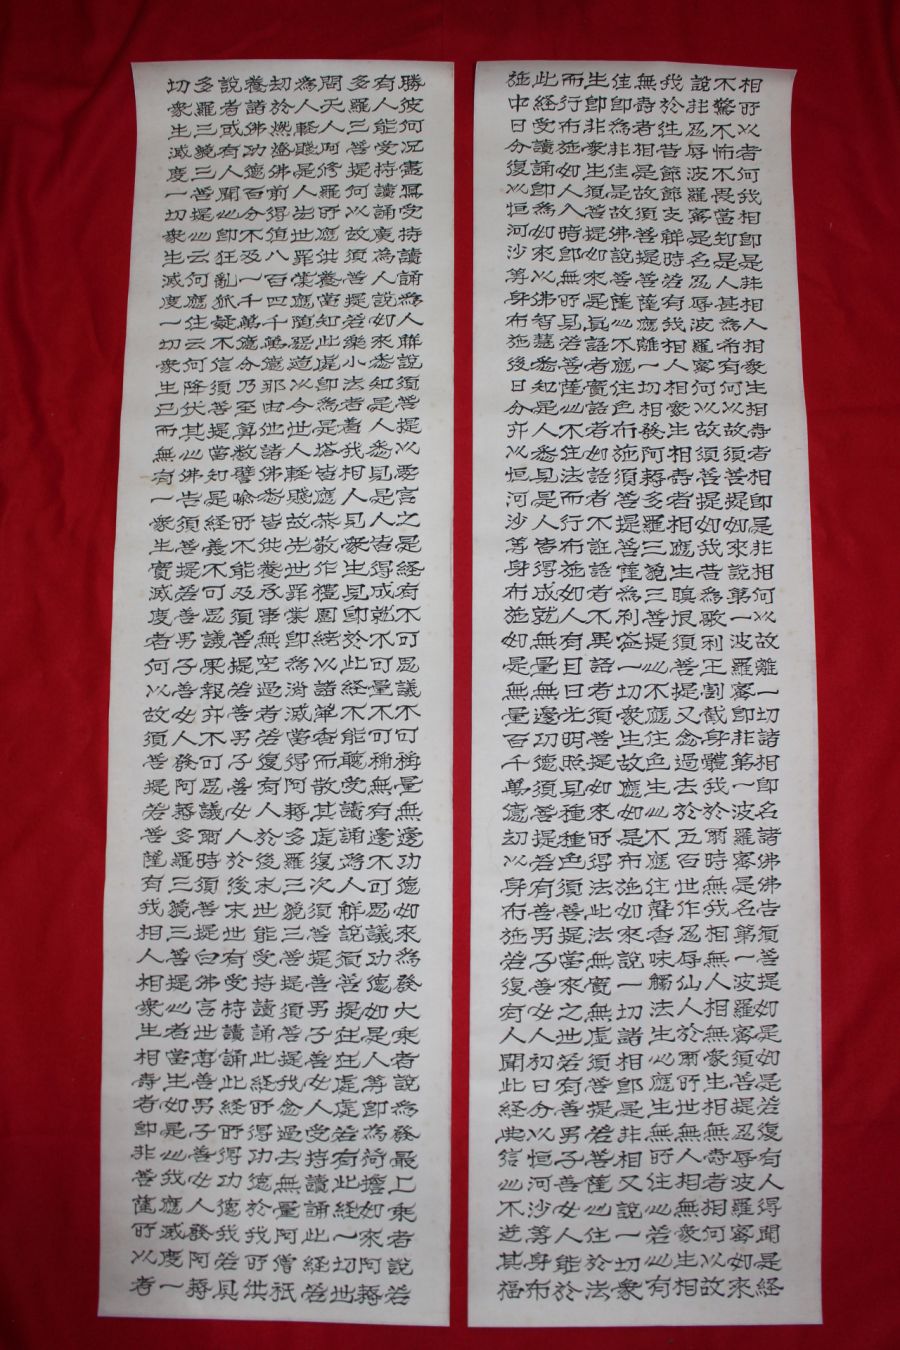 相所以者何我相即是非相人相衆生相壽者相即是非相何以故離一切諸相即名諸佛佛告須菩提如是如是若復有人得聞是経
不驚不怖不畏當知是人甚為希有何以故須菩提如來說第一波羅蜜即非第一波羅蜜是名第一波羅蜜須菩提忍辱波羅蜜如來
說非忍辱波羅蜜是名忍辱波羅蜜何以故須菩提如我昔為歌利王割截身體我於爾時無我相無人相無衆生相無壽者相何以故
我於往昔節節支解時若有我相人相衆生相壽者相應生瞋恨須菩提又念過去於五百世作忍辱仙人於爾所世無人相無衆生相
無壽者相是故須菩提菩薩應離一切相發阿耨多羅三藐三菩提心不應住色生心不應住聲香味觸法生心應生無所住心若心有
住即為非住是故佛說菩薩心不應住色布施須菩提菩薩為利益一切衆生故應如是布施如來說一切諸相即是非相又說一切衆
生即非衆生須菩提如來是真語者實語者如語者不誑語者不異語者須菩提如來所得法此法無實無虛須菩提若菩薩心住於法
而行布施如人入暗即無所見若菩薩心不住法而行布施如人有目日光明照見種種色須菩提當來之世若有善男子善女人能於
此経受讀誦即為如來以佛智慧悉知是人悉見是人皆得成就無量無邊功德須菩提若有善男子善女人初日分以恒河沙等身布
施中日分復以恒河沙等身布施後日分亦以恒河沙等身布施如是無量百千萬億劫以身布施若復有人聞此経典信心不逆其福
勝彼何况書寫受持讀誦為人解說須菩提以要言之是経有不可思議不可稱量無邊功德如來為發大乘者說為發最上乘者說若
有人能受持讀誦廣為人說如來悉知是人悉見是人皆得成就不可量不可稱無有邊不可思議功德如是人等即為荷擔如來阿耨
多羅三菩提何以故須菩提若樂小法者着我相人見衆生見即於此経不能聽受讀誦為人解說須菩提在在處處若有此経一切世
間天人阿修羅所應供養當知此處即為是塔皆應恭敬作禮圍繞以諸華香而散其處復次須菩提善男子善女人受持讀誦此経若
為人輕賤是人先世罪業應墮惡道以今世人輕賤故先世罪業即為消滅當得阿耨多羅三藐三菩提須菩提我念過去無量阿僧祇
劫於燃燈佛前得值八百四千萬億那由他諸佛悉皆供養承事無空過者若復有人於後末世能受持讀誦此経所得功德於我所供
養諸佛功德百分不及一千萬億分乃至算數譬喻所不能及須菩提若善男子善女人於後末世有受持讀誦此経所得功德我若具
說者或有人聞心即狂亂狐疑不信須菩提當知是経義不可思議果報亦不可思議爾時須菩提白佛言世尊善男子善女人發阿耨
多羅三藐三菩提心云何應住云何降伏其心佛告須菩提若善男子善女人發阿耨多羅三藐三菩提心者當生如是心我應滅度一
切衆生滅度一切衆生滅度一切衆生已而無有一衆生實滅度者何以故須菩提若菩薩有我相人相衆生相壽者相即非菩薩所以者